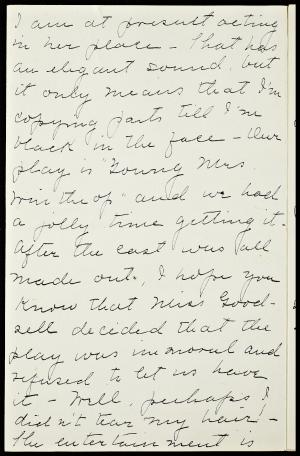 I am at present acting
in her place - That has
an elegant sound, but
it only means that I'm
copying parts till I'm
black in the face - Our
play is "Young Mrs.
Winthrop" and we had
a jolly time getting it.
After the cast was all
made out, I hope you
know that Miss Good-
sell decided that the
play was immoral and
refused to let us have
it - Well, perhaps I
didn't tear my hair! -
The entertainment is